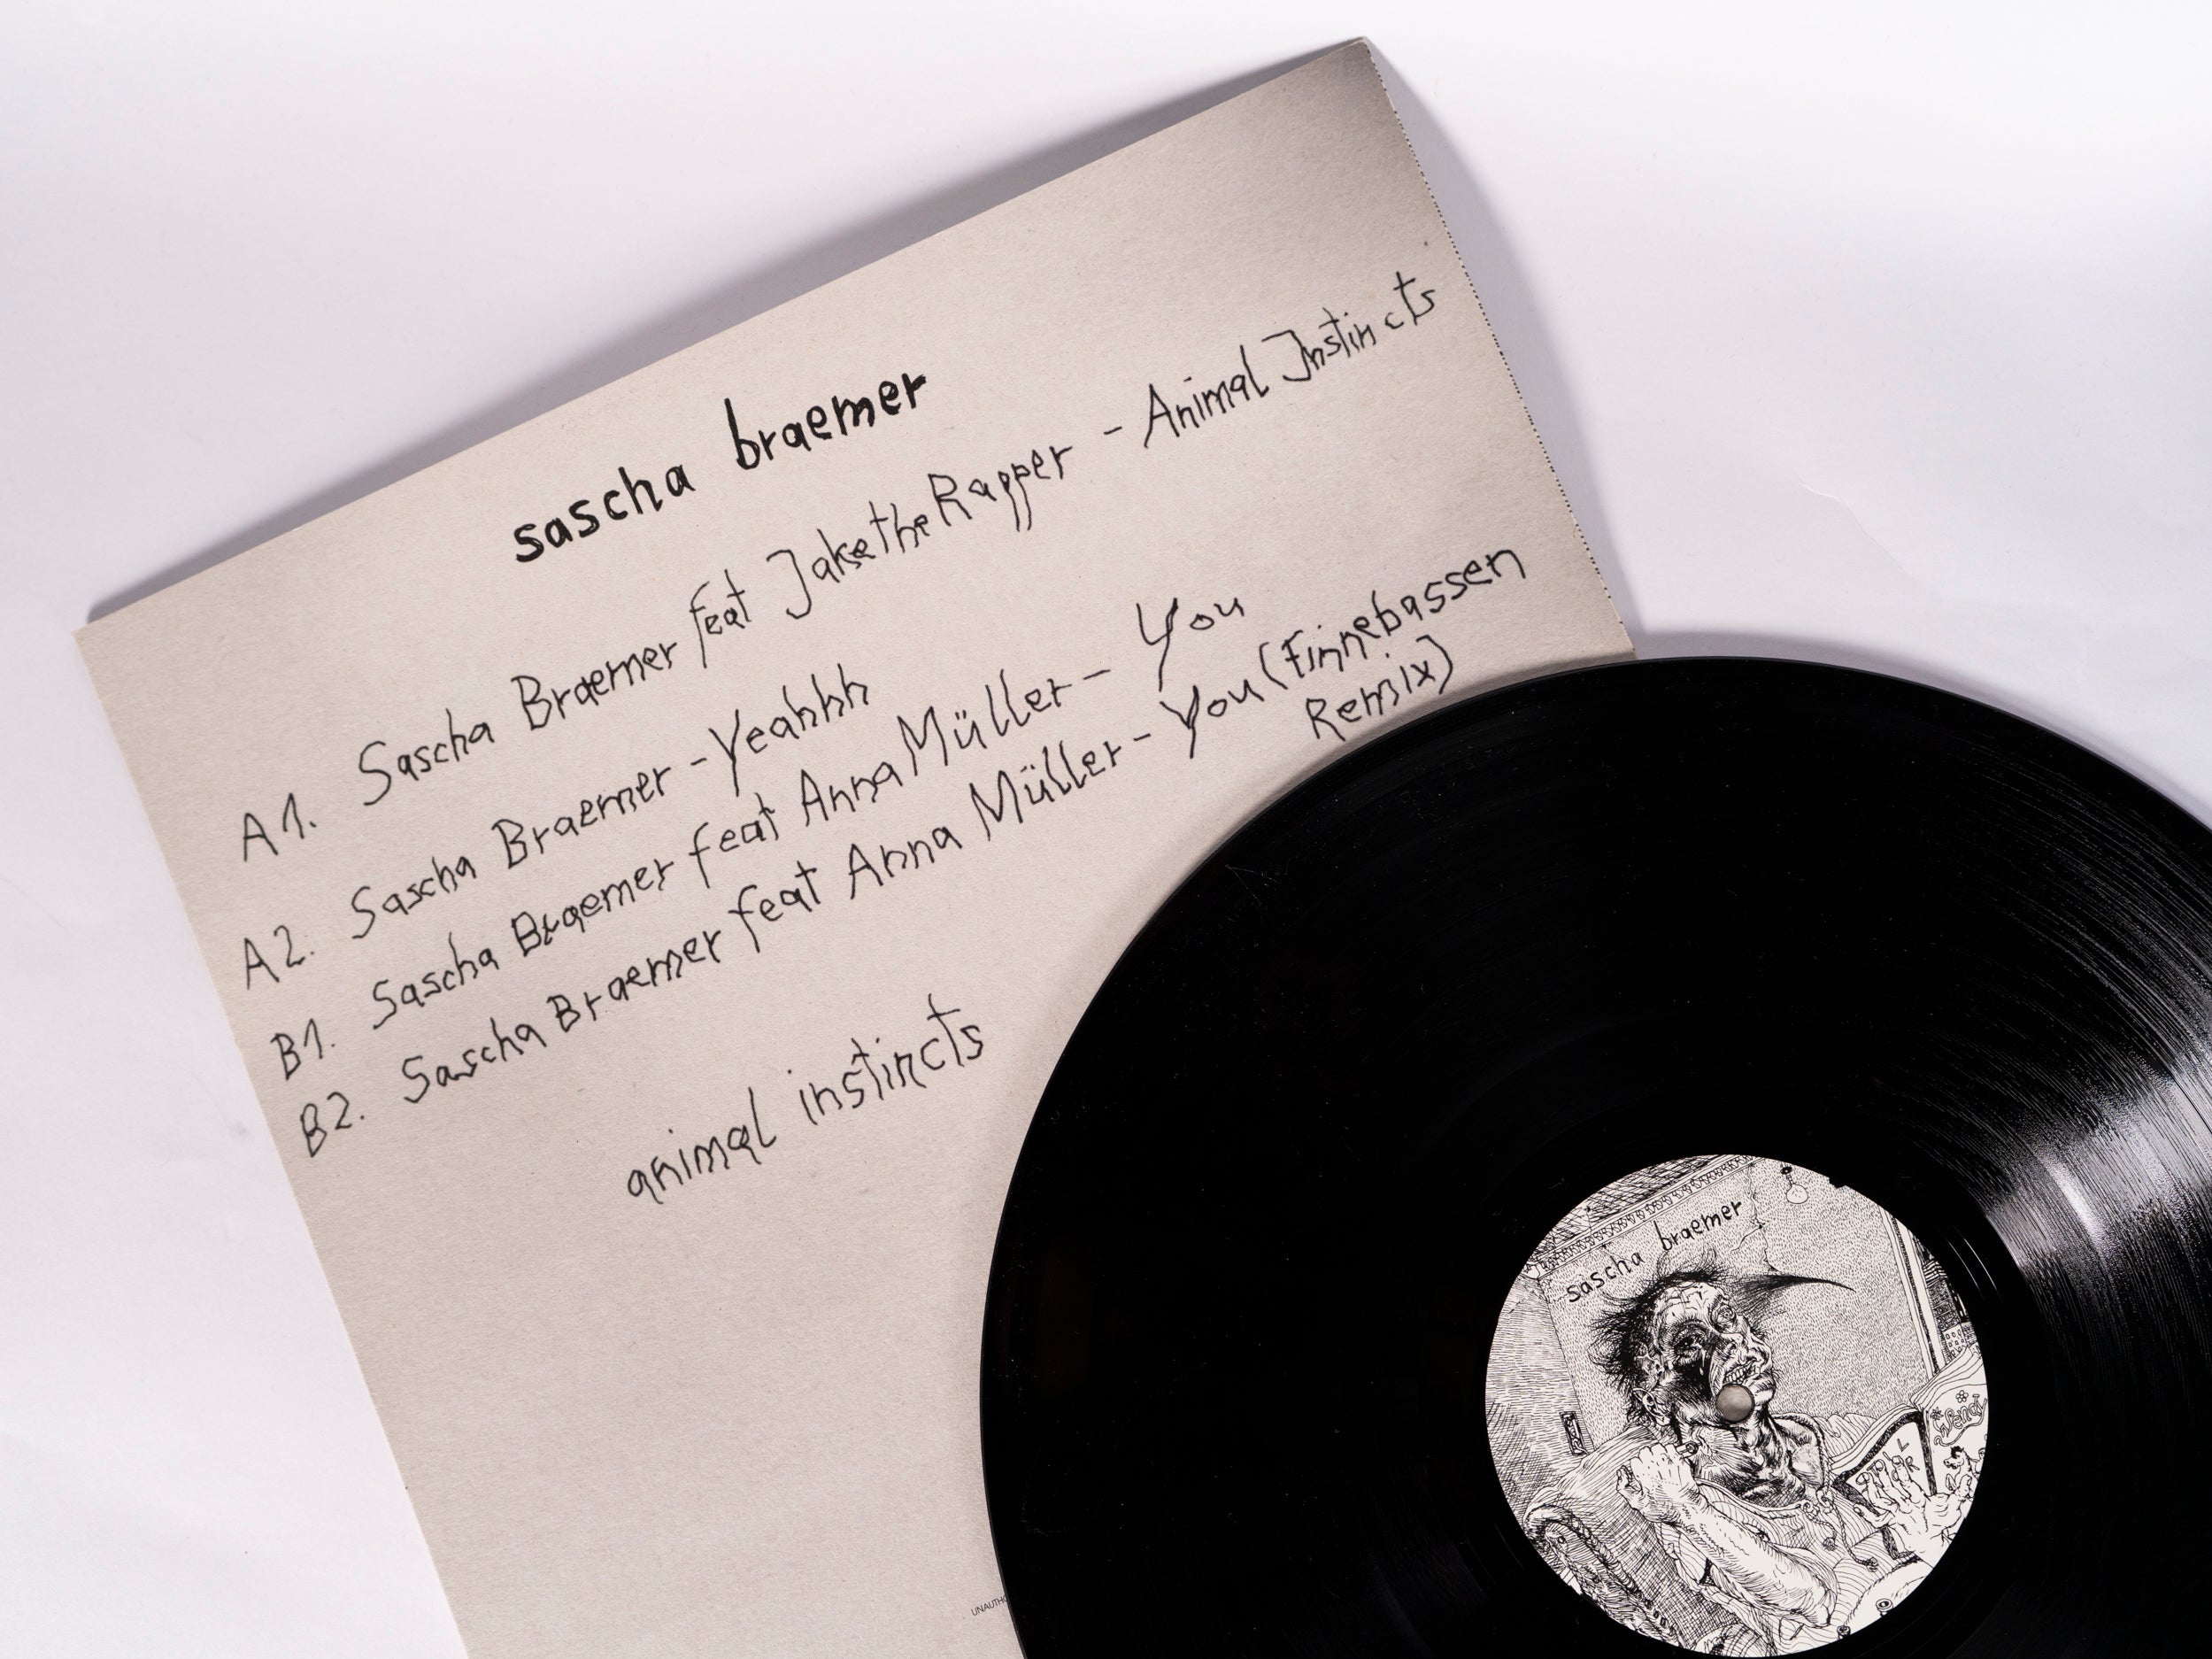 sascha braemer
A1. Sascha Braemer feat Jake the Rapper - Animal Instincts
A2. Sascha Braemer - Yeahhh
B1. Sascha Braemer feat Anna Müller - You
B2. Sascha Braemer feat Anna Müller - You (Finnebassen
Remix)
animal instincts
sascha braemer